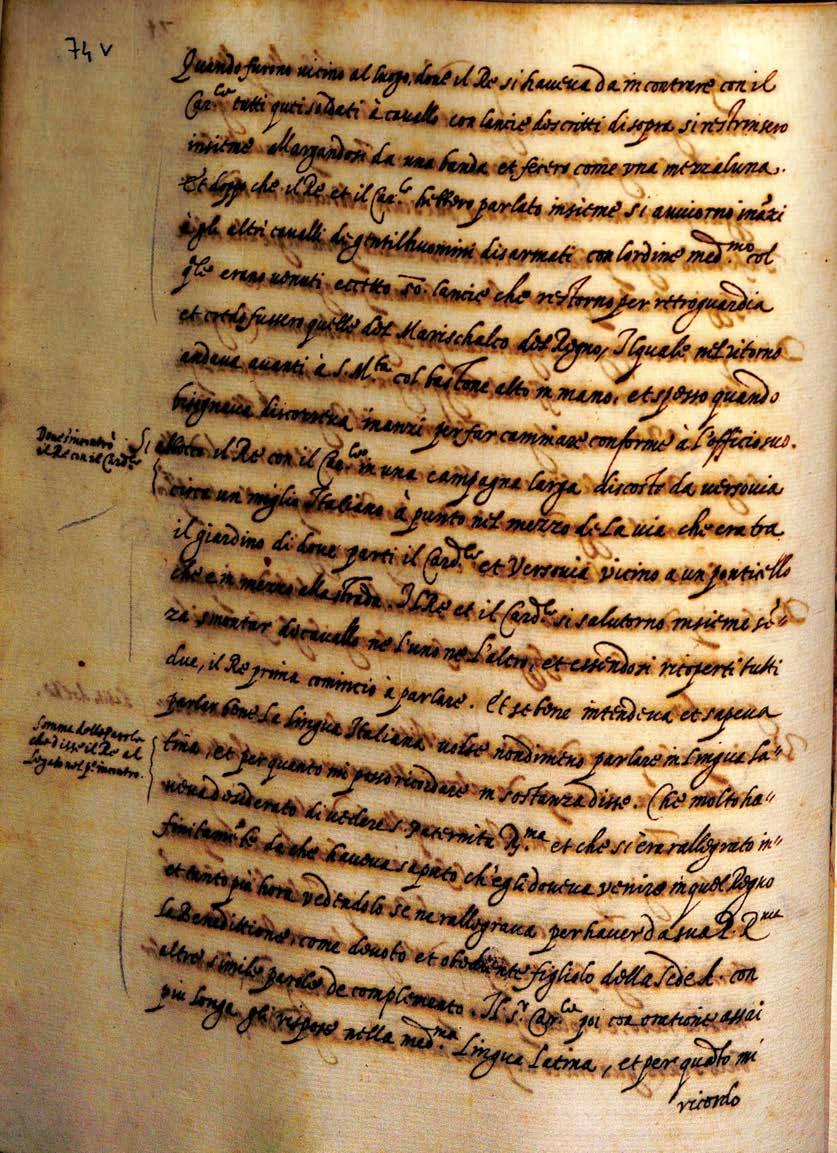 74 v
Quando furono vicino al luogo, dove il Re si haveva da incontrare con il
Car.le tutti quei soldati à cavallo con lancie descritti di sopra si restrinsero
insieme allargandosi da una banda et fecero come una mezzaluna.
Et dopp che il Re et il Car.le hebbero parlato insieme si avviorno inãzi
à gli altri cavalli di gentilhuomini disarmati con lordine med.mo col
q̃le erano venuti eccetto 50. lancie che restorno per retroguardia
et credo fussero quelle del Marischalco del Regno, Il quale nel ritorno
andava avanti à S. M.tà col bastone alto in mano, et spesso quando
bisognava discorreva inanzi per far caminare conforme à l'officio suo.
Dove s'incontrò
il Re con il Card.le
Si abbocco il Re con il Car.le in una campagna larga discosto da versovia
circa un miglio Italiano à punto nel mezzo de La via che era tra
il giardino di dove parti il Card.le et Versovia vicino a un ponticello
che è in mezzo alla strada. Il Re et il Card.le si salutorno insieme sẽ=
za smontar di cavallo ne l'uno ne L'altro, et essendosi ricoperti tutti
due, il Re prima cominciò à parlare. Et se bene intendeva et sapeva
parlar bene La lingua Italiana volse nondimeno parlare in Lingua La=
Somma delle parole
che disse il Re al
Legato nel p.o incontro.
tina, et per quanto mi posso ricordare in sostanza disse. Che molto ha=
veva desiderato di vedere S. Paternità R.ma et che si era rallegrato in=
finitamẽte da che haveva saputo ch'egli doveva venire in quel Regno
et tanto più hora vedẽdolo se ne rallegrava per haver da sua P. R.ma
la Benedittione, come devoto et obediente figliolo della Sede A. con
altre simile parole de complemento. Il S.r Car.le poi con oratione assai
più longa gli rispose nella med.ma Lingua Latina, et per quãto mi
ricordo